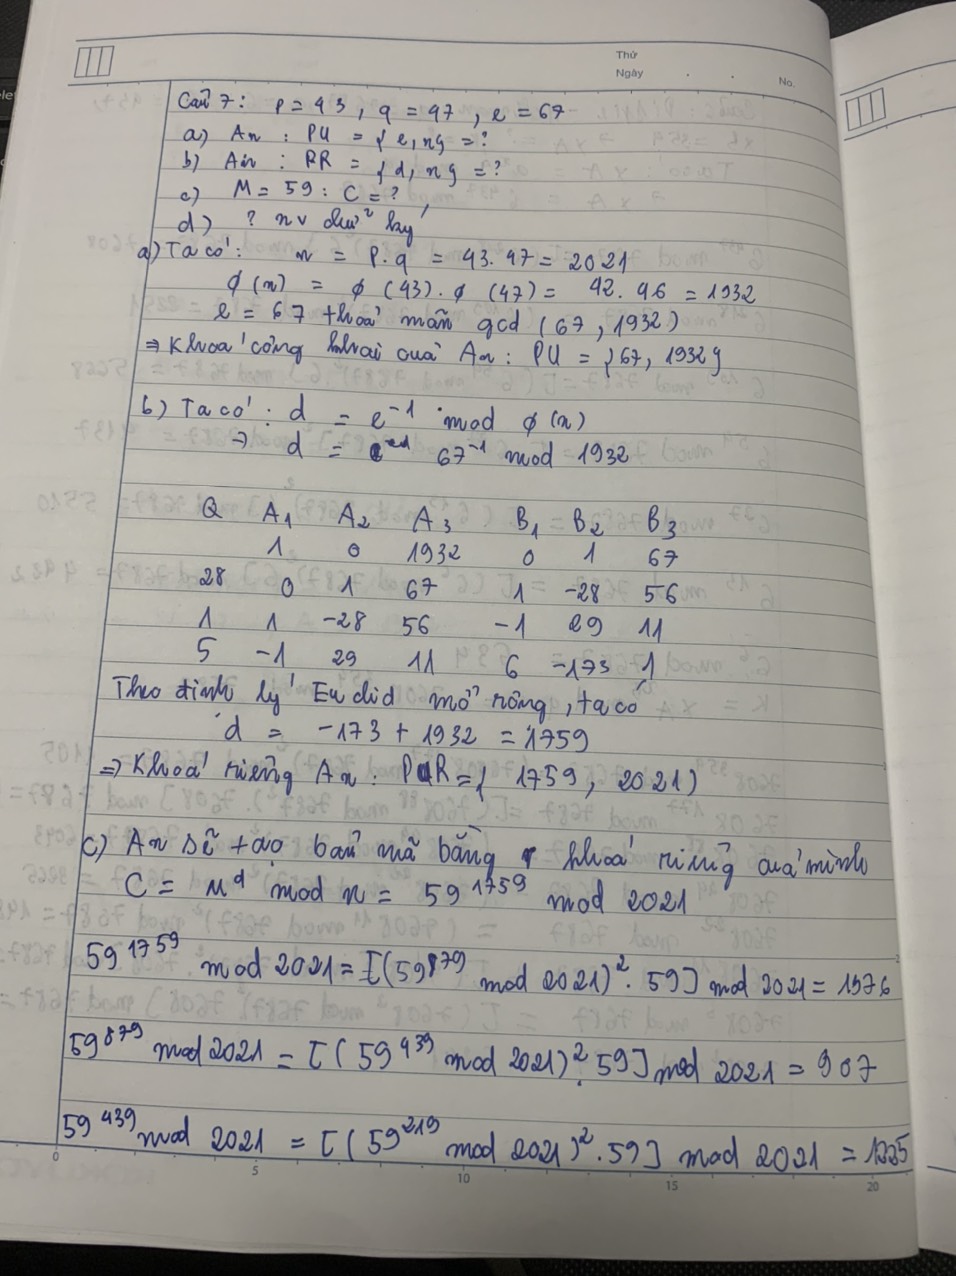 Thứ
Ngày . . No.
Câu 7: p = 43, q = 47, e = 67
a) An : PU = { e, n} = ?
b) An : PR = { d, n } = ?
c) M = 59 : C = ?
d) ? nv dư² lay
a) Ta có: n = p.q = 43.47 = 2021
ϕ(n) = ϕ(43).ϕ(47) = 42.46 = 1932
e = 67 thoả mãn gcd (67, 1932)
⇒ Khoá công khai của An : PU = {67, 1932}
b) Ta có : d = e⁻¹ mod ϕ(n)
⇒ d = 67⁻¹ mod 1932
Q A₁ A₂ A₃ B₁ B₂ B₃
1 0 1932 0 1 67
28 0 1 67 1 -28 56
1 1 -28 56 -1 29 11
5 -1 29 11 6 -173 1
Theo định lý Euclid mở rộng, ta có
d = -173 + 1932 = 1759
⇒ Khoá riêng An : PR = { 1759, 2021)
c) An sẽ tạo bản mã bằng khoá riêng của mình
C = Mᵈ mod n = 59¹⁷⁵⁹ mod 2021
59¹⁷⁵⁹ mod 2021 = [(59⁸⁷⁹ mod 2021)². 59] mod 2021 = 1576
59⁸⁷⁹ mod 2021 = [(59⁴³⁹ mod 2021)². 59] mod 2021 = 907
59⁴³⁹ mod 2021 = [(59²¹⁹ mod 2021)². 59] mod 2021 = 1225
0 5 10 15 20